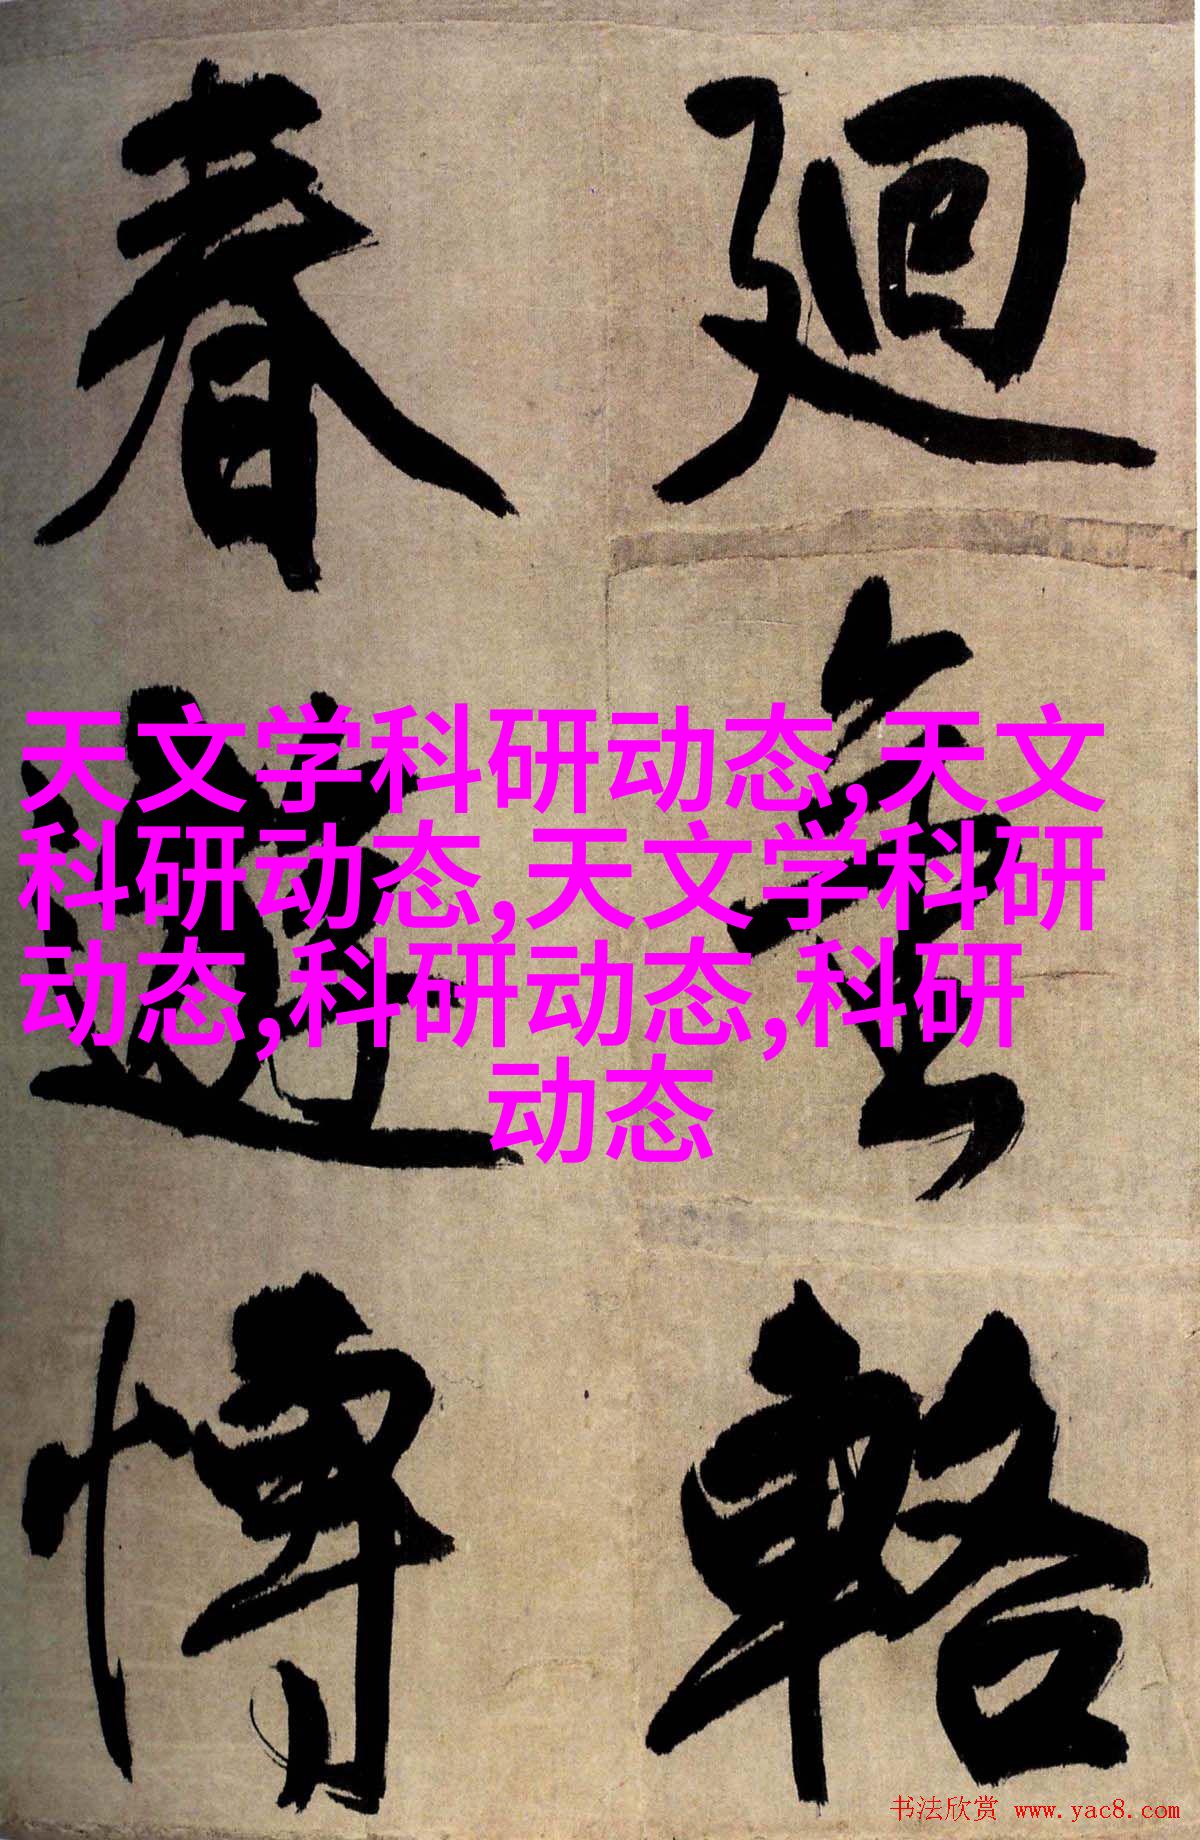 廻 輅
春遊愽
天文学科研动态,天文
科研动态,天文学科研
动态,科研动态,科研
动态
书法欣赏 www.yac8.com